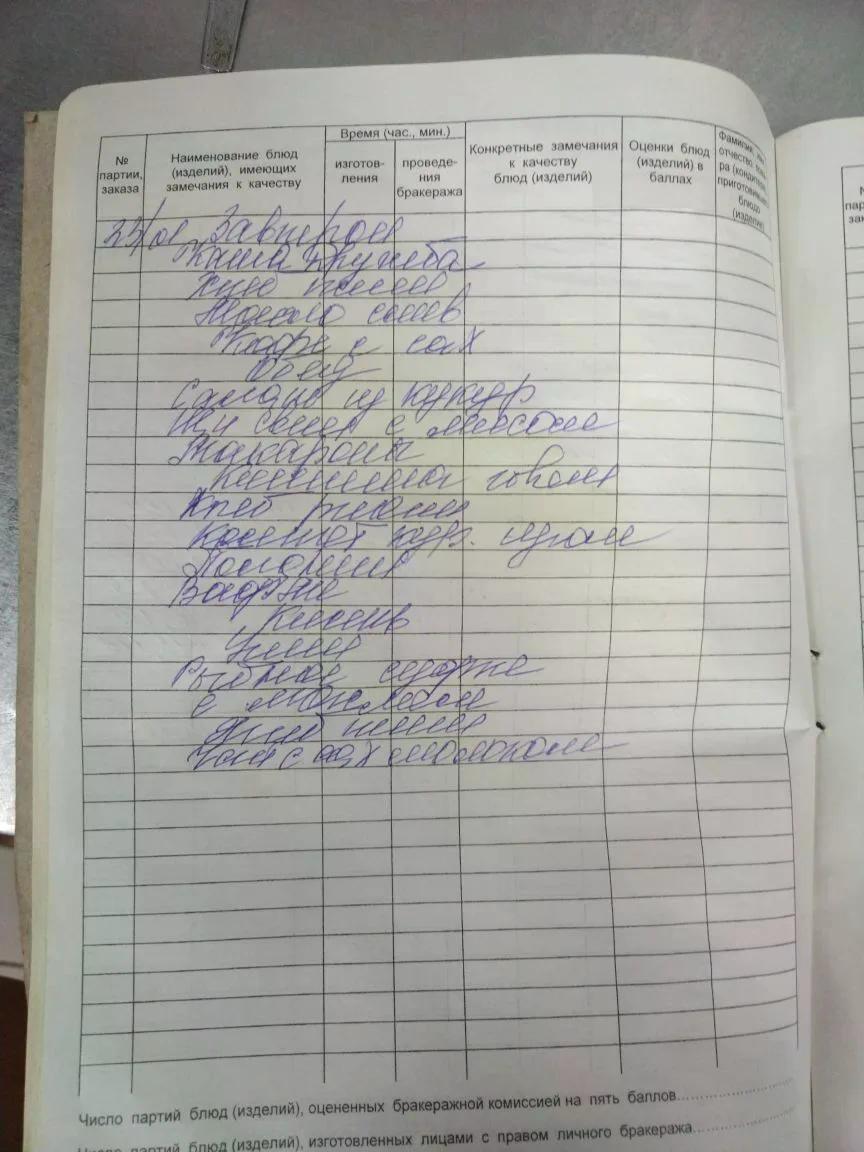 № партии, заказа
Наименование блюд (изделий), имеющих замечания к качеству
Время (час., мин.)
изготов-
ления
проведе-
ния
бракеража
Конкретные замечания
к качеству
блюд (изделий)
Оценки блюд
(изделий) в
баллах
Фамилия,
отчество
ра (кондитера
приготовив
блюдо
(изделие)
Завтрак
Каша Дружба
Хлеб пшен
Масло слив
Кофе с сах
Обед
Салат из кукур
Щи свеж с мясом
Макароны
говяж
Хлеб ржаной
Компот кур. изюм
Полдник
Вафли
Кисель
Ужин
Рыбные
с
Хлеб пшен
Чай с сах молоком
Число партий блюд (изделий), оцененных бракеражной комиссией на пять баллов
Число партий блюд (изделий), изготовленных лицами с правом личного бракеража